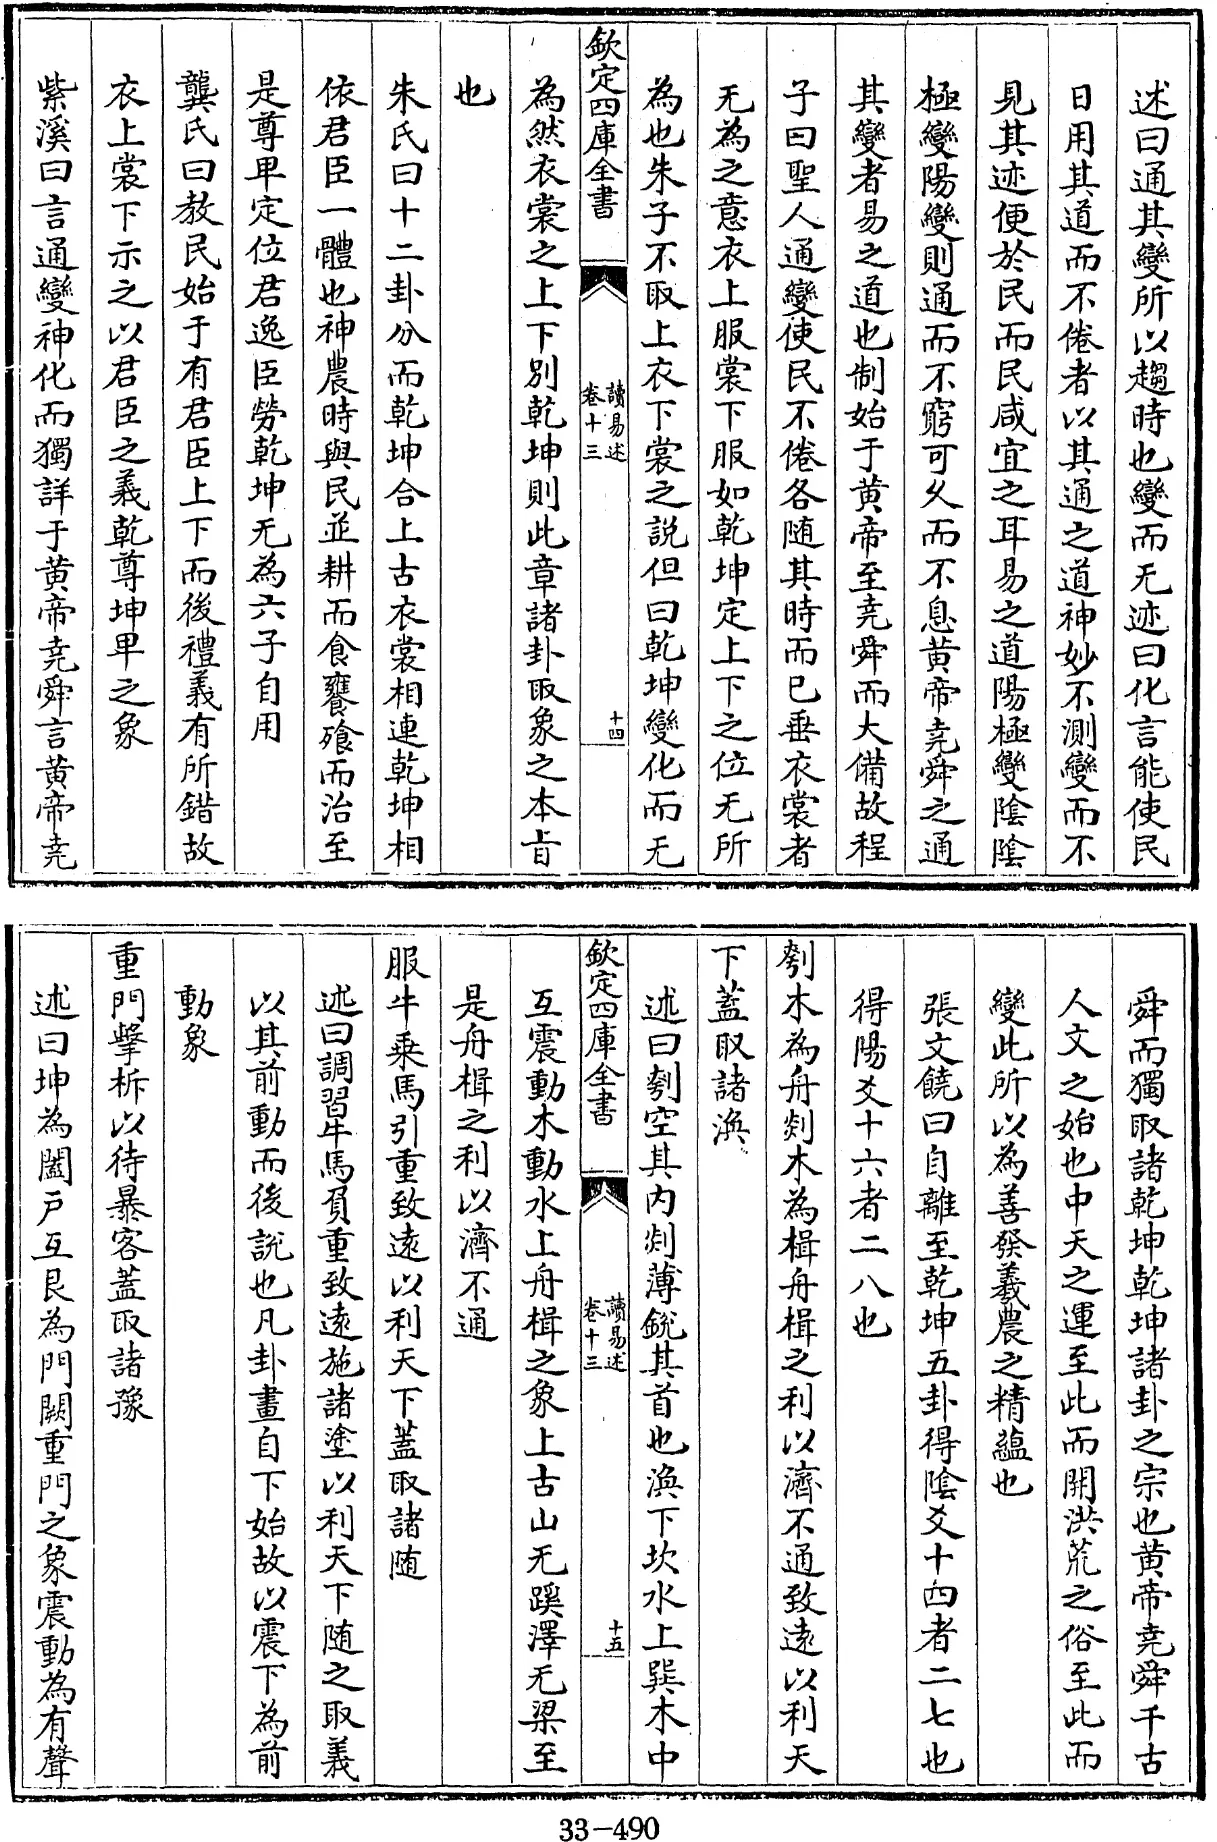 述曰通其變所以趨時也變而无迹曰化言能使民
日用其道而不倦者以其通之道神妙不測變而不
見其迹便於民而民咸宜之耳易之道陽極變陰陰
極變陽變則通而不窮可久而不息黄帝堯舜之通
其變者易之道也制始于黄帝至堯舜而大備故程
子曰聖人通變使民不倦各随其時而已垂衣裳者
无為之意衣上服裳下服如乾坤定上下之位无所
為也朱子不取上衣下裳之說但曰乾坤變化而无
欽定四庫全書
讀易述
卷十三
十四
為然衣裳之上下別乾坤則此章諸卦取象之本旨
也
朱氏曰十二卦分而乾坤合上古衣裳相連乾坤相
依君臣一體也神農時與民並耕而食饔飱而治至
是尊卑定位君逸臣勞乾坤无為六子自用
龔氏曰教民始于有君臣上下而後禮義有所錯故
衣上裳下示之以君臣之義乾尊坤卑之象
紫溪曰言通變神化而獨詳于黄帝堯舜言黄帝堯
舜而獨取諸乾坤乾坤諸卦之宗也黄帝堯舜千古
人文之始也中天之運至此而開洪荒之俗至此而
變此所以為善發羲農之精蘊也
張文饒曰自離至乾坤五卦得陰爻十四者二七也
得陽爻十六者二八也
刳木為舟剡木為楫舟楫之利以濟不通致逺以利天
下蓋取諸渙
述曰刳空其内剡薄銳其首也渙下坎水上巽木中
欽定四庫全書
讀易述
卷十三
十五
互震動木動水上舟楫之象上古山无蹊澤无梁至
是舟楫之利以濟不通
服牛乘馬引重致逺以利天下蓋取諸随
述曰調習牛馬負重致逺施諸塗以利天下随之取義
以其前動而後說也凡卦畫自下始故以震下為前
動象
重門擊柝以待暴客蓋取諸豫
述曰坤為闔戶互艮為門闕重門之象震動為有聲
33-490